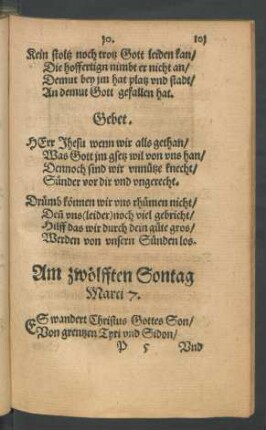 30. 103
Kein stoltz noch trotz Gott leiden kan/
Die hoffertign nimbt er nicht an/
Demut bey jm hat platz vnd stadt/
An demut Gott gefallen hat.
Gebet.
HErr Jhesu wenn wir alls gethan/
Was Gott jm gsetz wil von vns han/
Dennoch sind wir vnnütze knecht/
Sünder vor dir vnd vngerecht.
Drümb können wir vns rhümen nicht/
Deñ vns (leider) noch viel gebricht/
Hilff das wir durch dein güte gros/
Werden von vnsern Sünden los.
Am zwölfften Sontag
Marci 7.
ES wandert Christus Gottes Son/
Von grentzen Tyri vnd Sidon/
P 5 Vnd